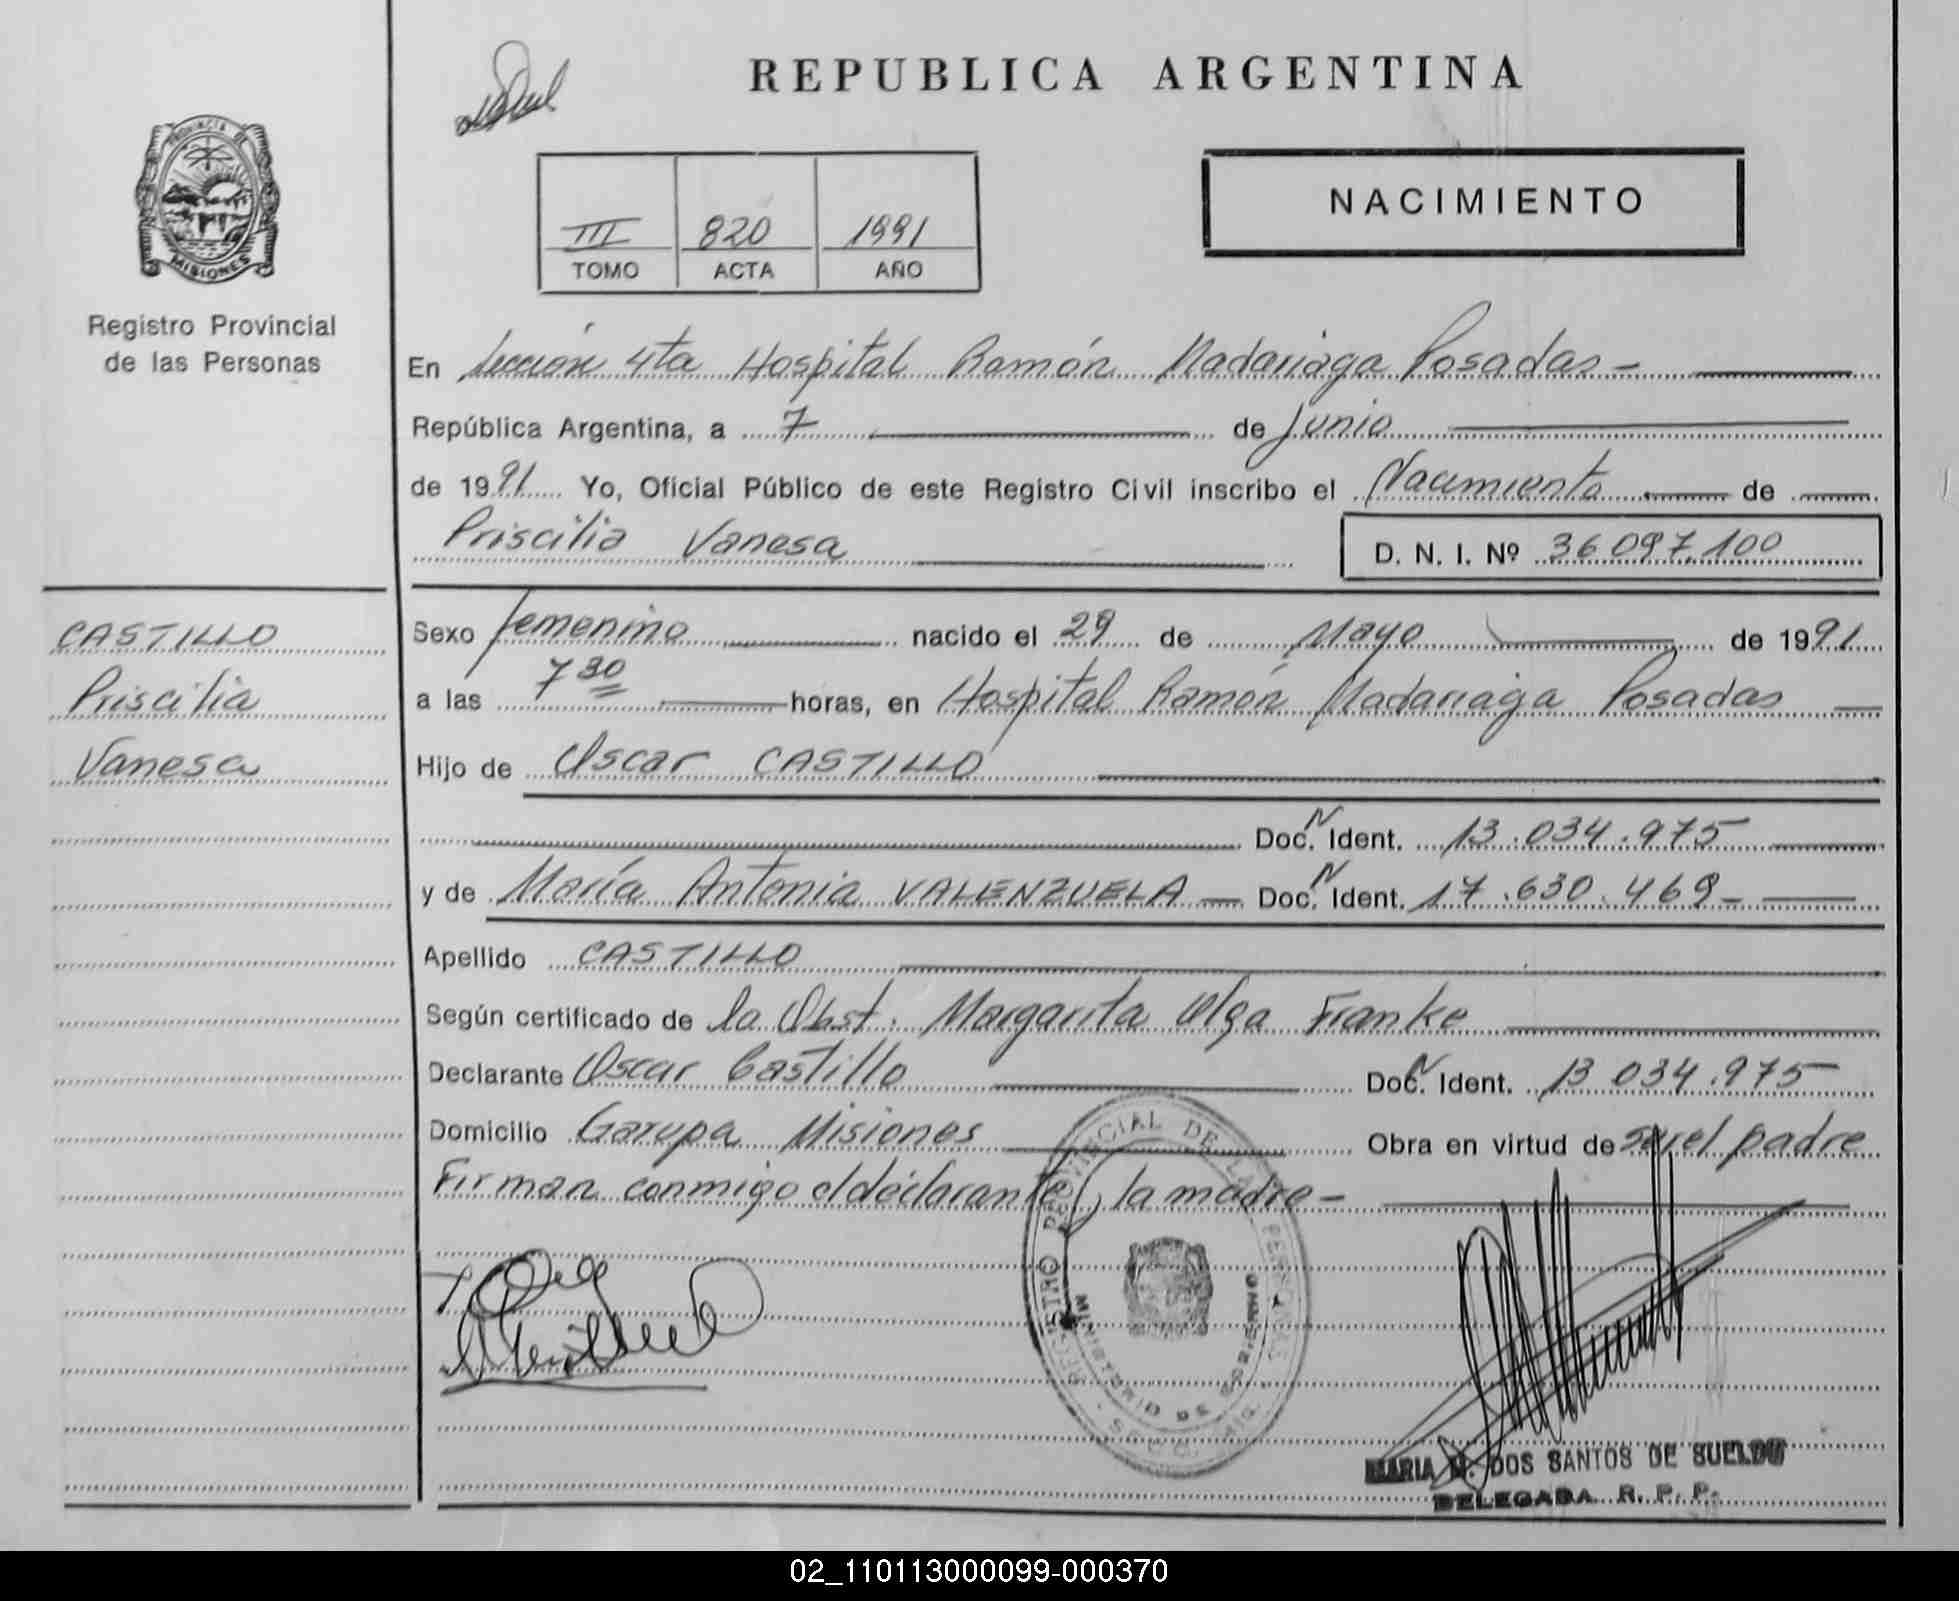 REPUBLICA ARGENTINA
PROVINCIA DE
MISIONES
Registro Provincial
de las Personas
III 820 1991
TOMO ACTA AÑO
NACIMIENTO
En Sección 4ta Hospital Ramón Madariaga Posadas -
República Argentina, a 7 de Junio
de 1991 Yo, Oficial Público de este Registro Civil inscribo el Nacimiento de
Priscilia Vanesa D. N. I. Nº 36.097.100
CASTILLO
Priscilia
Vanesa
Sexo femenino nacido el 29 de Mayo de 1991
a las 7 30 horas, en Hospital Ramón Madariaga Posadas
Hijo de Oscar CASTILLO
Doc. N Ident. 13.034.975
y de María Antonia VALENZUELA Doc. N Ident. 17.630.469
Apellido CASTILLO
Según certificado de la Obst. Margarita Olga Franke
Declarante Oscar Castillo Doc. N Ident. 13 034.975
Domicilio Garupa Misiones Obra en virtud de ser el padre
Firman conmigo el declarante y la madre -
REGISTRO PROVINCIAL DE LAS PERSONAS
MARIA DOS SANTOS DE SUELDO
DELEGADA R. P. P.
02_110113000099-000370